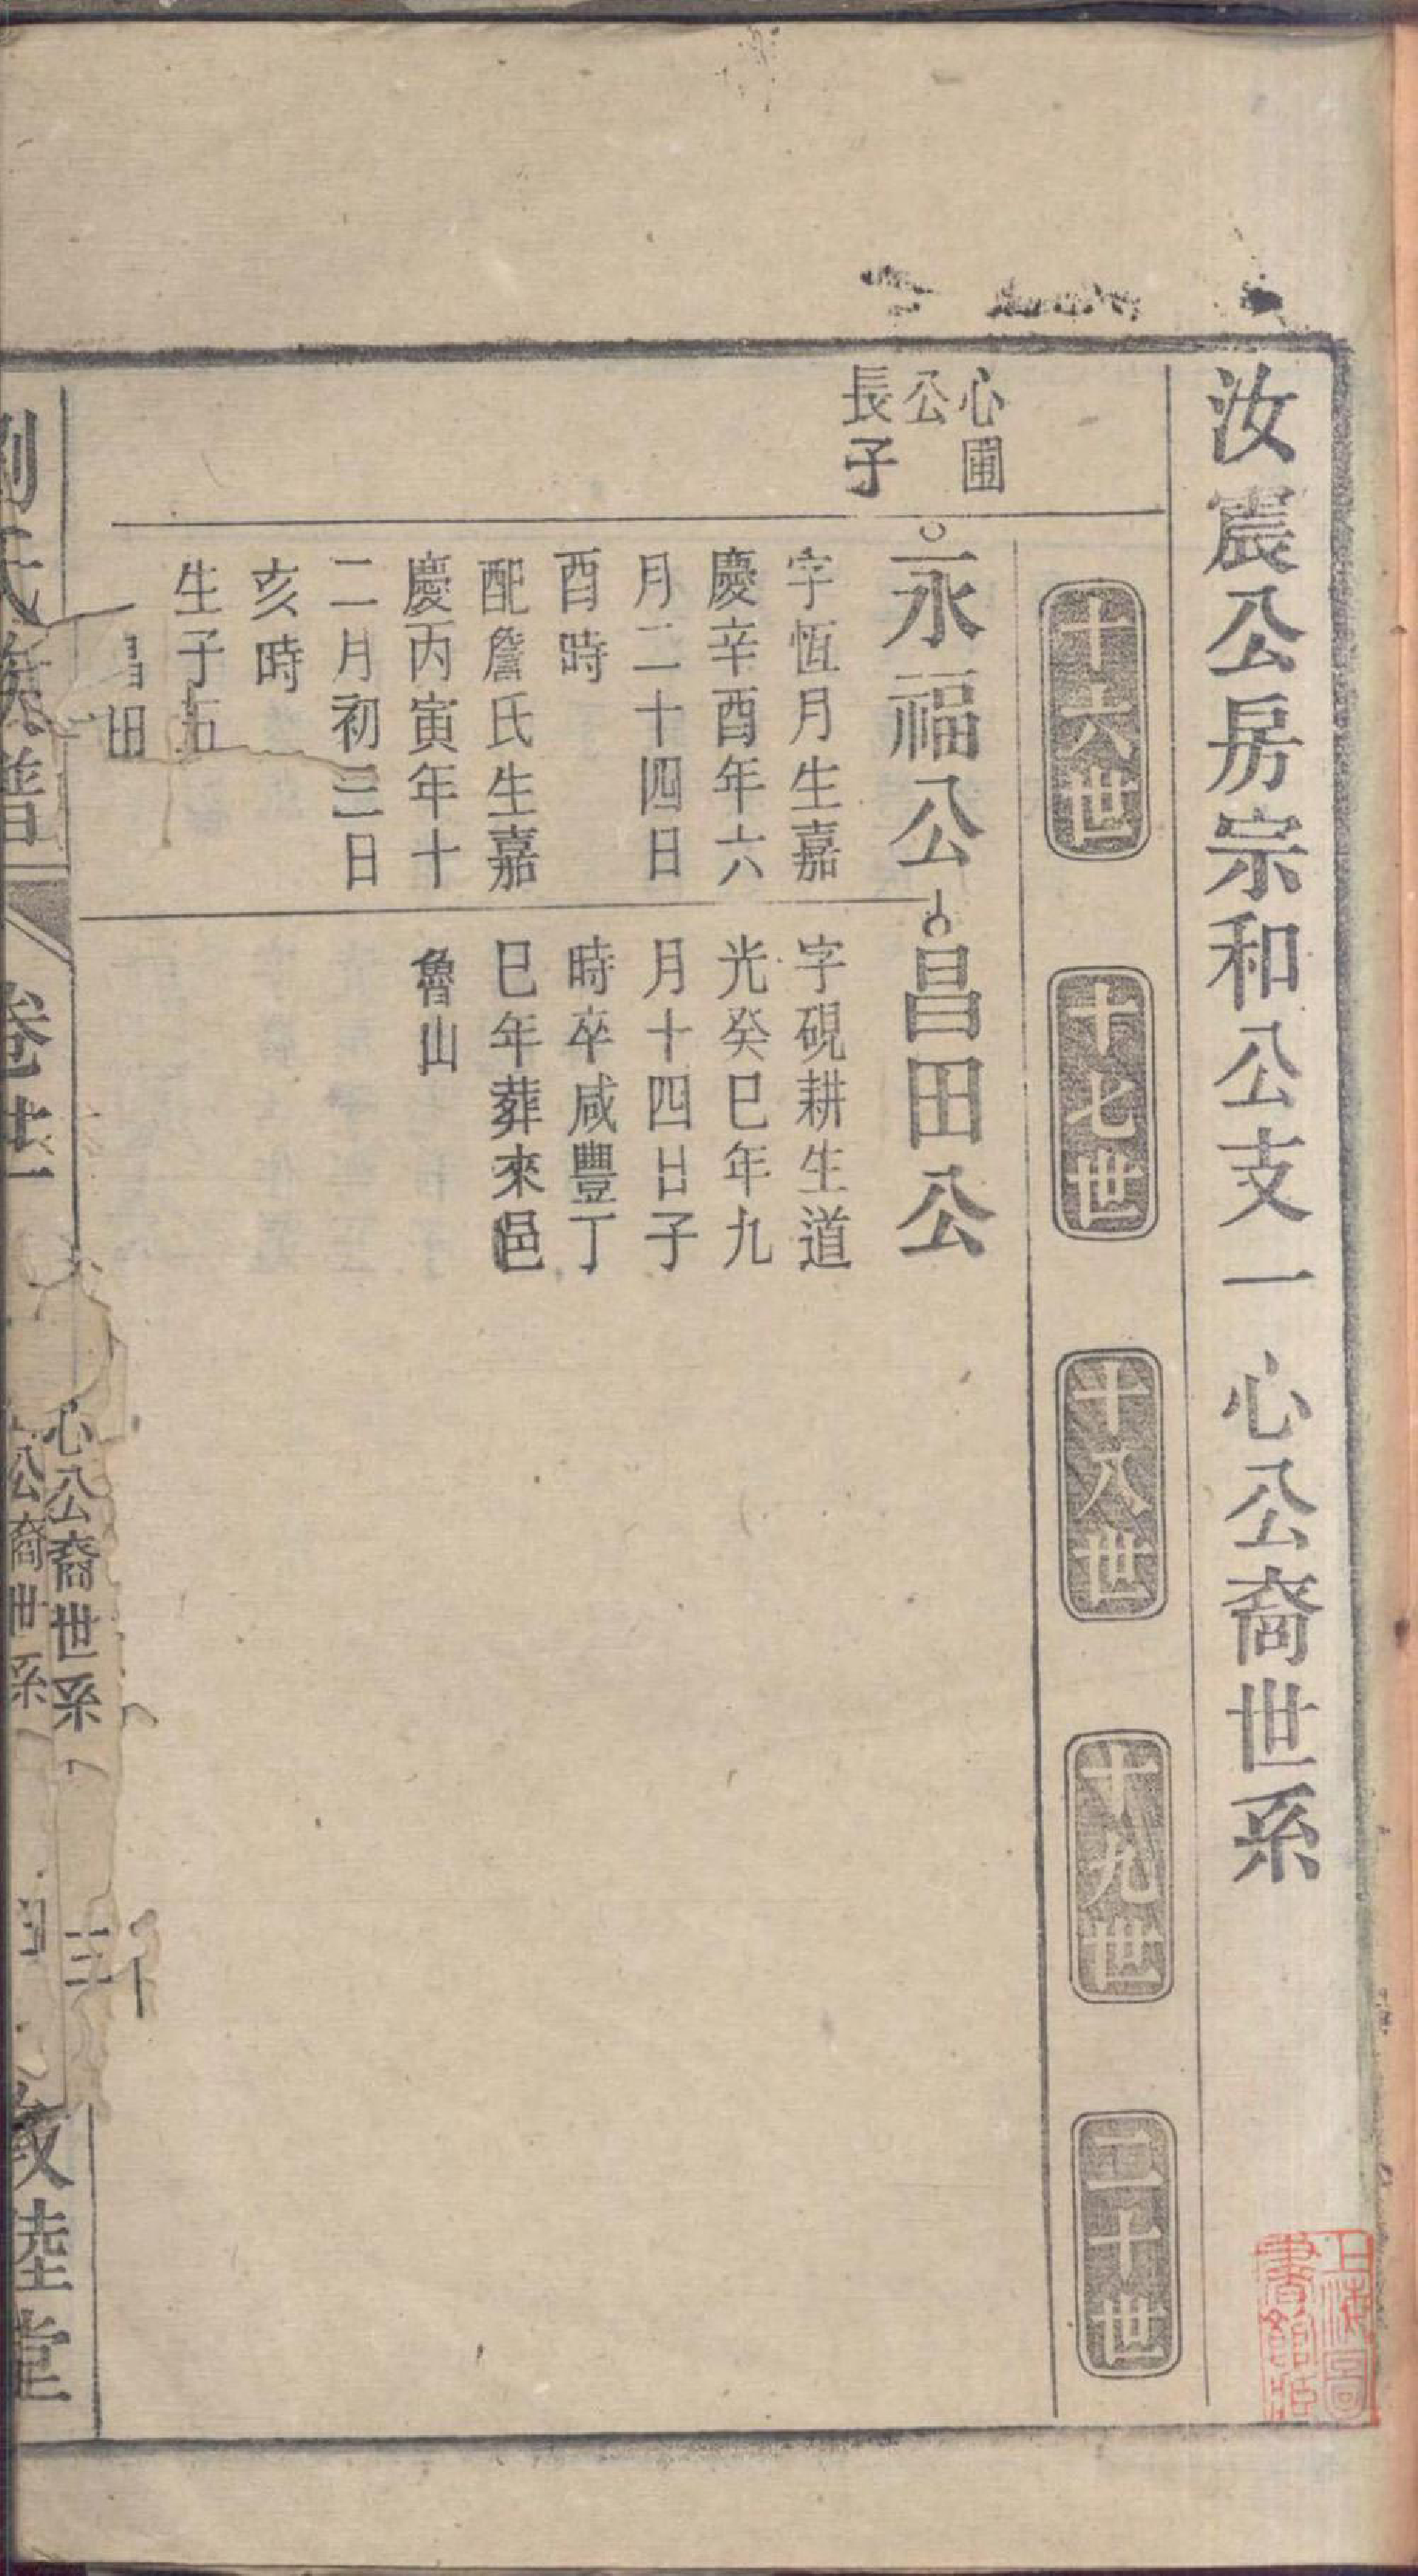 汝震公房宗和公支一心公裔世系
十六世
十七世
十八世
十九世
二十世
心圃
公
長子
永福公
字恆月生嘉
慶辛酉年六
月二十四日
酉時
配詹氏生嘉
慶丙寅年十
二月初三日
亥時
生子五
昌田
昌田公
字硯耕生道
光癸巳年九
月十四日子
時卒咸豐丁
巳年葬來邑
魯山
劉氏族譜
卷廿一
心公裔世系
三
公裔世系
敦睦堂
上海圖
書館藏